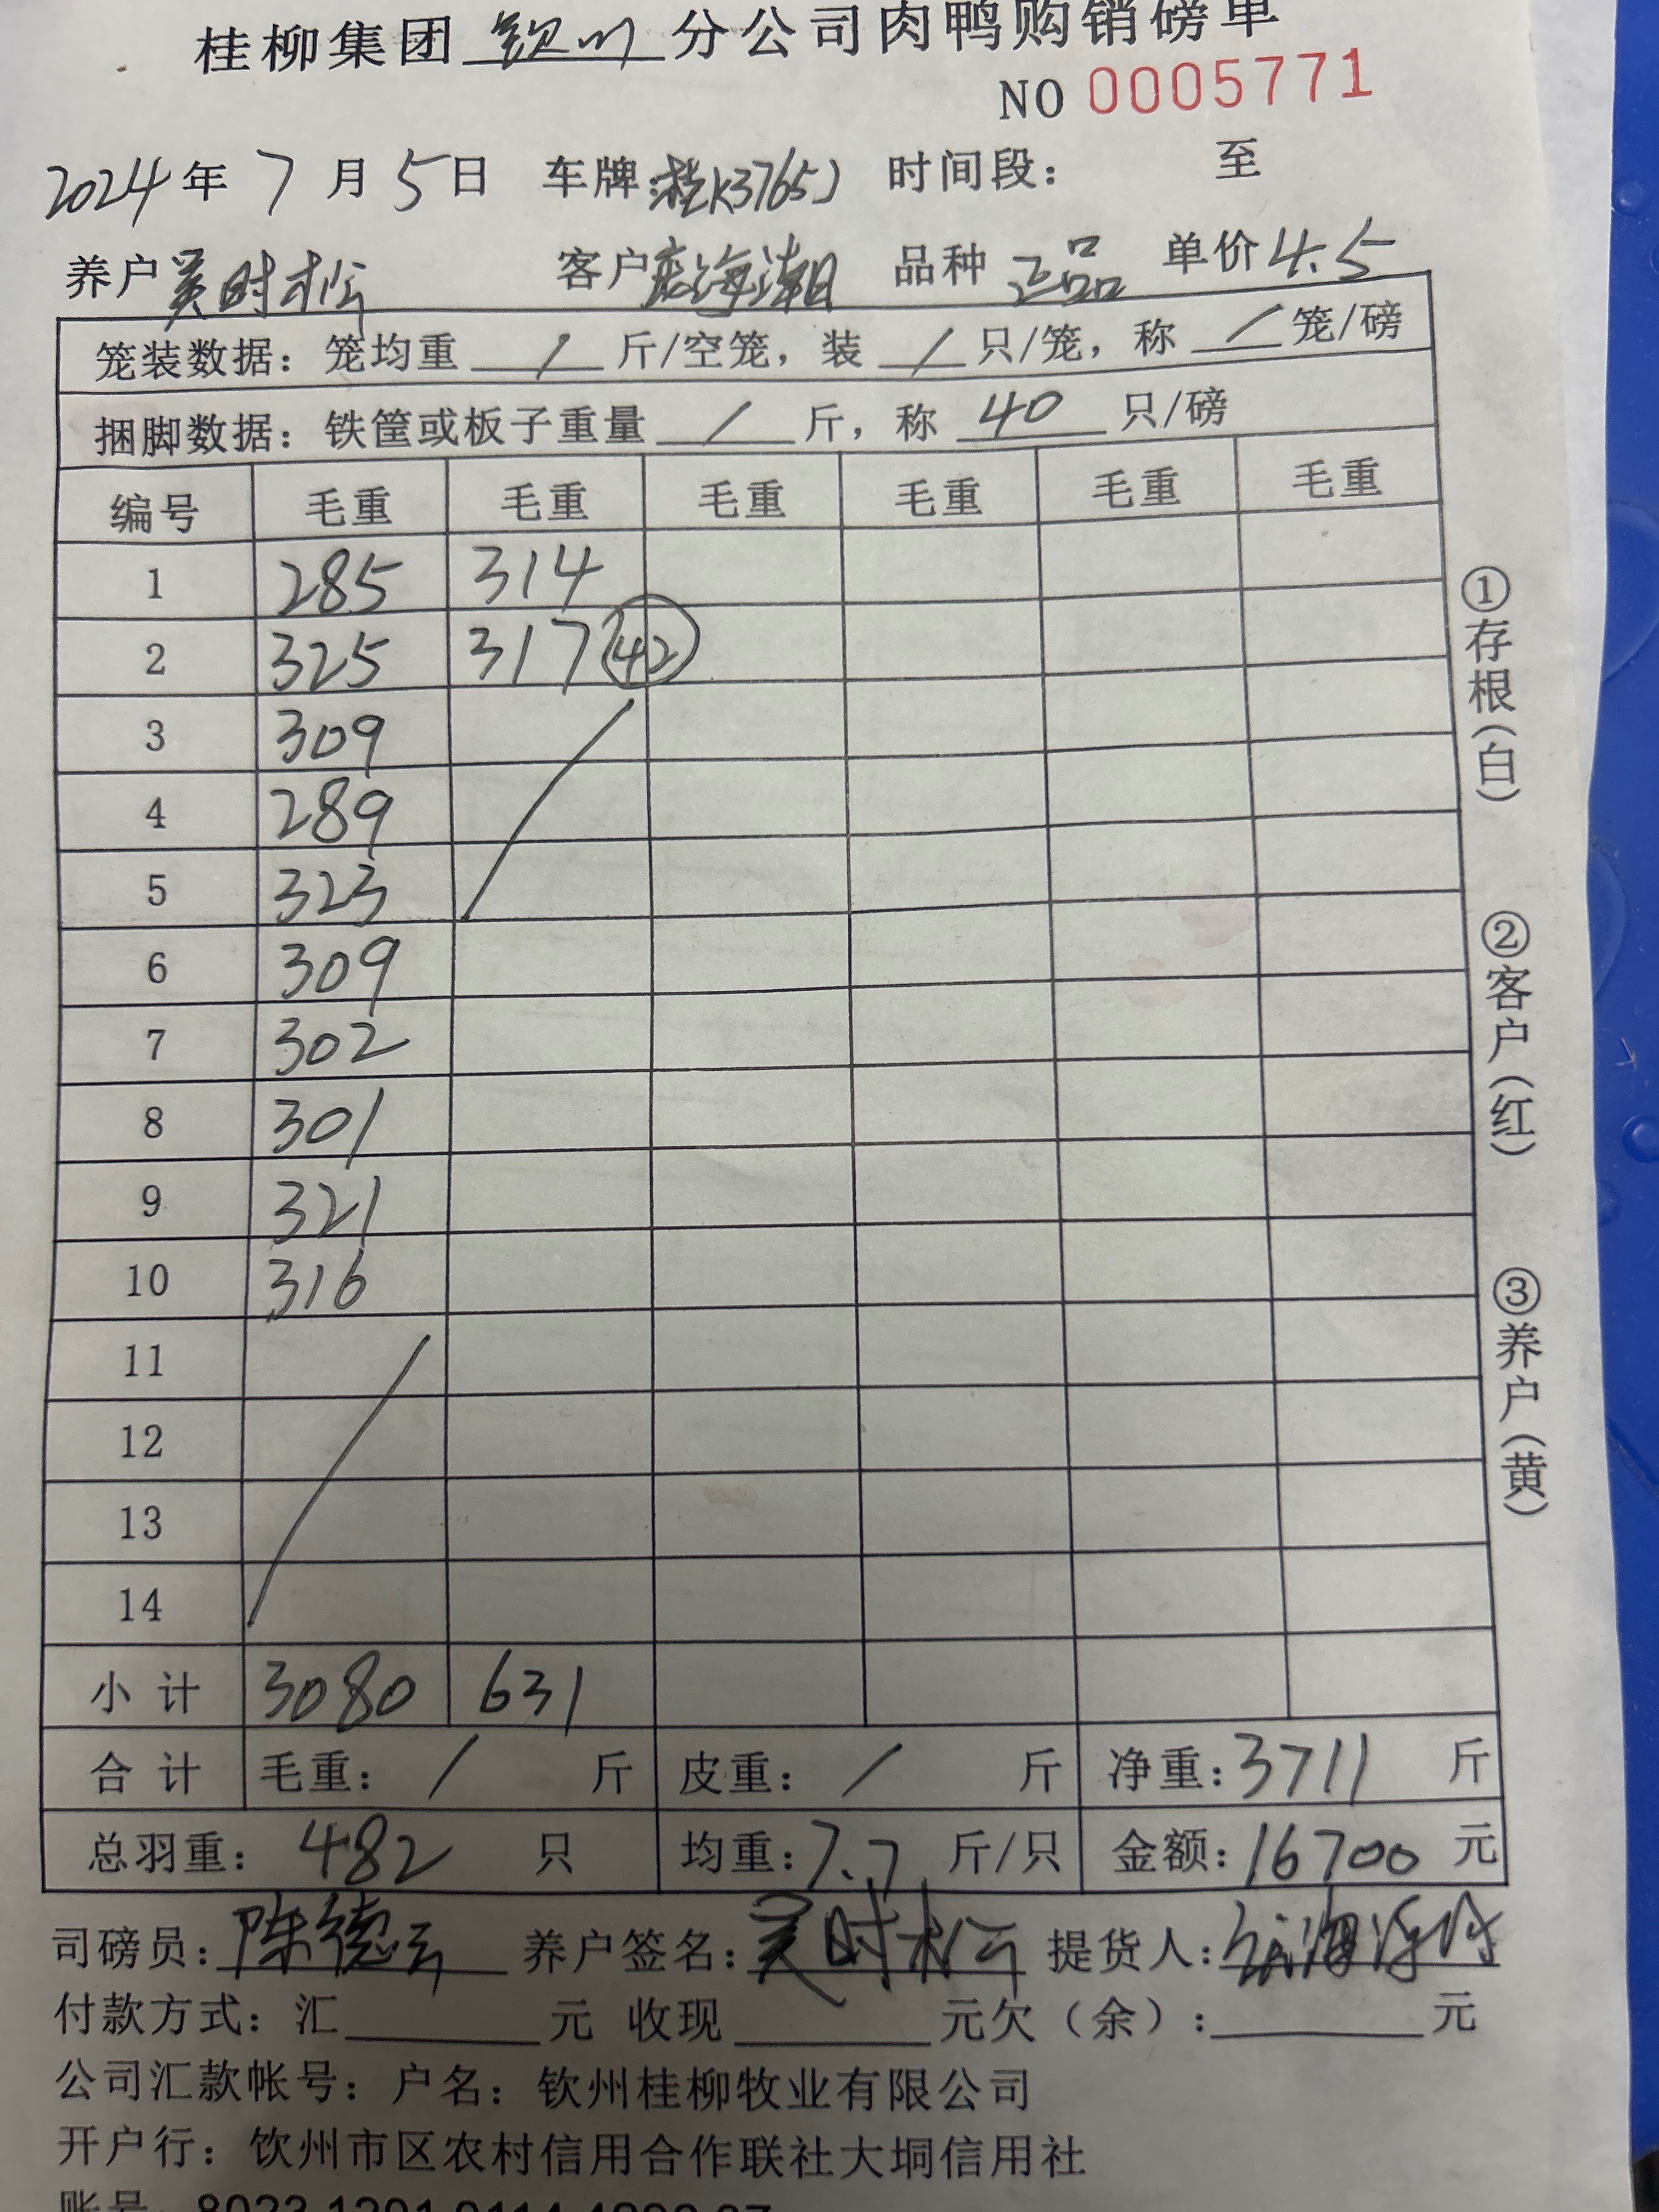 桂柳集团 钦州 分公司肉鸭购销磅单
NO 0005771
2024年 7月 5日 车牌:桂K3765J 时间段: 至
养户 吴时松 客户 海潮 品种 正品 单价 4.5
笼装数据: 笼均重 / 斤/空笼, 装 / 只/笼, 称 / 笼/磅
捆脚数据: 铁筐或板子重量 / 斤, 称 40 只/磅
编号 毛重 毛重 毛重 毛重 毛重 毛重
1 285 314
2 325 317 42
3 309
4 289
5 323
6 309
7 302
8 301
9 321
10 316
11
12
13
14
小计 3080 631
合计 毛重: / 斤 皮重: / 斤 净重: 3711 斤
总羽重: 482 只 均重: 7.7 斤/只 金额: 16700 元
司磅员: 陈德云 养户签名: 吴时松 提货人:
付款方式: 汇 元 收现 元欠(余): 元
公司汇款帐号: 户名: 钦州桂柳牧业有限公司
开户行: 饮州市区农村信用合作联社大垌信用社
①存根(白)
②客户(红)
③养户(黄)